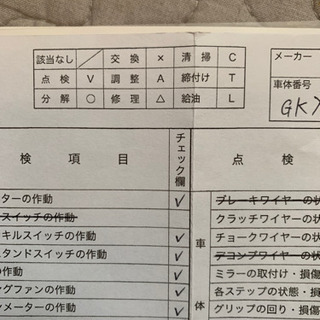 該当なし ／ 交換 × 清掃 C
点検 V 調整 A 締付け T
分解 ○ 修理 △ 給油 L
メーカー
車体番号
GK7
検項目 チェック欄 点検
ターの作動 ✓
スイッチの作動
キルスイッチの作動 ✓
スタンドスイッチの作動 ✓
の作動 ✓
ングファンの作動 ✓
ンメーターの作動 ✓
車体
ブレーキワイヤーの状
クラッチワイヤーの状
チョークワイヤーの状
デコンプワイヤーの状
ミラーの取付け・損傷
各ステップの状態・損
グリップの回り・損傷